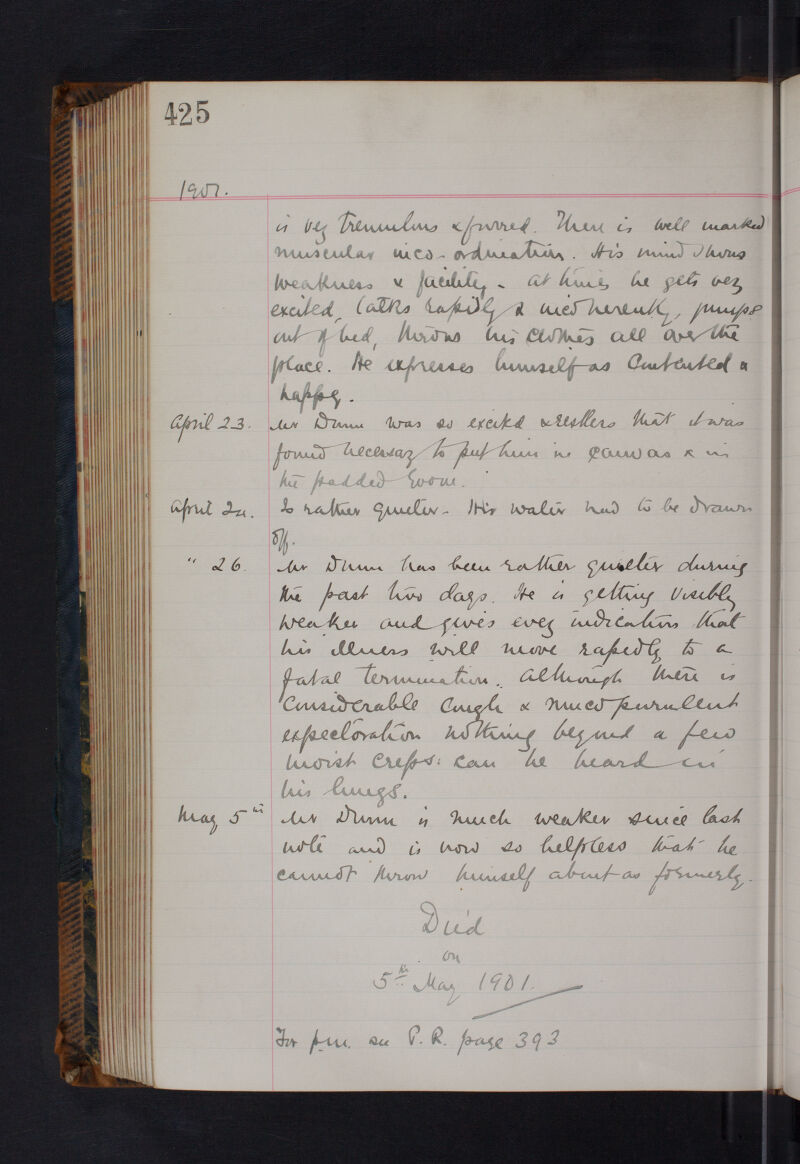 425
1901.
is very tremulous & furred. There is well marked
muscular inco-ordination. His mind shows
weakness & facility - at times he gets very
excited, talks rapidly & incoherently, jumps
out of bed, throws his clothes all over the
place. He expresses himself as contented &
happy.
April 23. Mr Dunn was so excited & restless that it was
found necessary to put him in canvas & in
the padded room.
April 24. Is rather quieter - His water had to be drawn
off.
" 26. Mr Dunn has been rather quieter during
the past two days. He is getting visibly
weaker and gives every indication that
his illness will move rapidly to a
fatal termination. Although there is
considerable cough & mucopurulent
expectoration nothing beyond a few
moist creps: can be heard in
his lungs.
May 5th Mr Dunn is much weaker since last
note and is now so helpless that he
cannot throw himself about as formerly.
Died
on
5th May 1901.
For p.m. see P. R. page 393